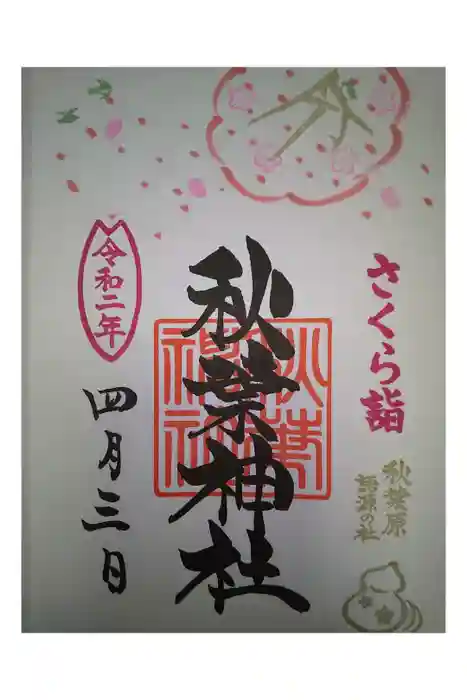 さくら詣
秋葉原
語源の社
秋葉神社
秋葉神社
令和二年
四月三日